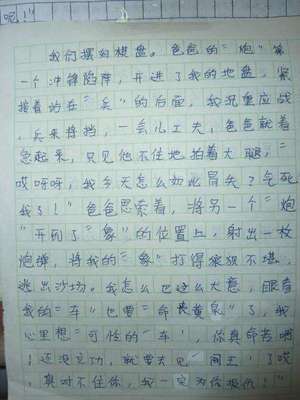 呢！"
我们摆好棋盘。爸爸的"炮"第
一个冲锋陷阵，开进了我的地盘，紧
接着站在"兵"的后面，我沉重应战
，兵来将挡，一会儿工夫，爸爸就着
急起来，只见他不住地拍着大腿，"
哎呀呀，我今天怎么如此冒失？气死
我了！"爸爸思索着，将另一个"炮
"开到了"象"的位置上，射出一枚
炮弹，将我的"象"打得狼狈不堪，
逃出沙场。我怎么也这么大意，眼看
我的"车"也要"命丧黄泉"了，我
心里想"可怜的'车'，你真命苦啊
！还没立功，就要去见'阎王'了哎
，真对不住你，我一定为你报仇！"